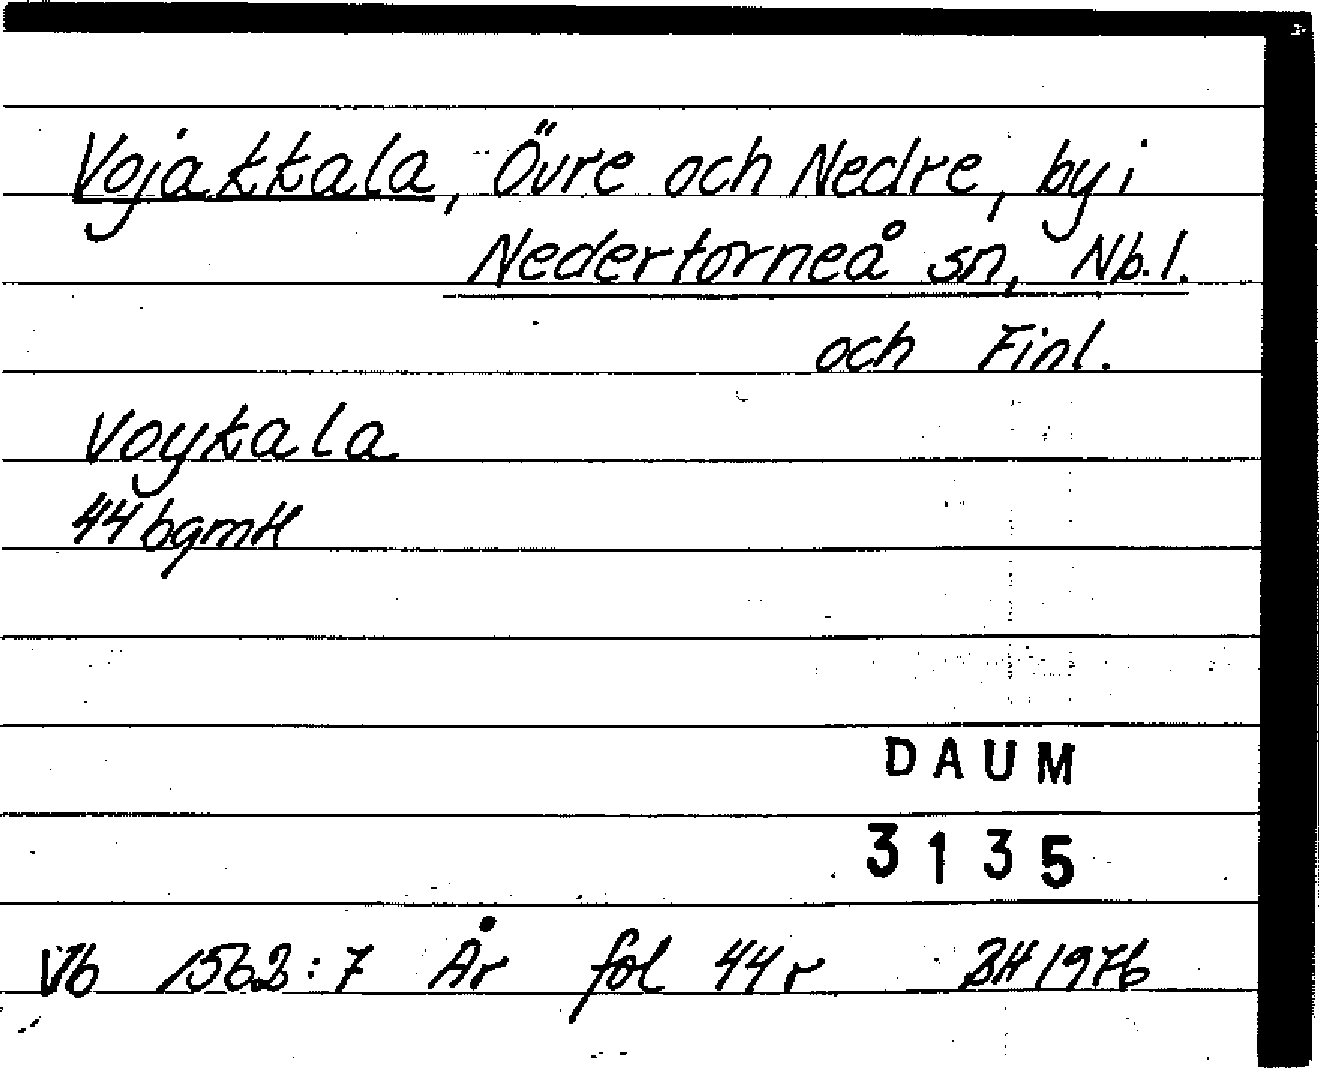 Vojakkala, Övre och Nedre, by i
Nedertorneå sn, Nb. l.
och Finl.
Voykala
44 bgmH
DAUM
3135
Vb 1562:7 År fol 44 r BH 1976